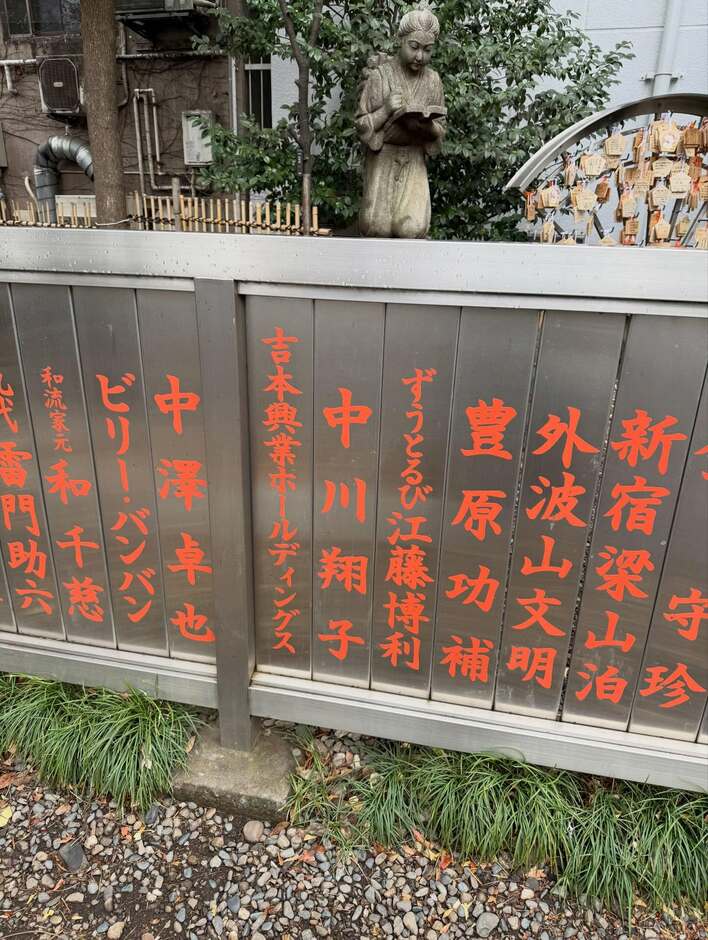 守珍
新宿梁山泊
外波山文明
豊原功補
ずうとるび江藤博利
中川翔子
吉本興業ホールディングス
中澤卓也
ビリー・バンバン
和流家元 和千慈
雷門助六